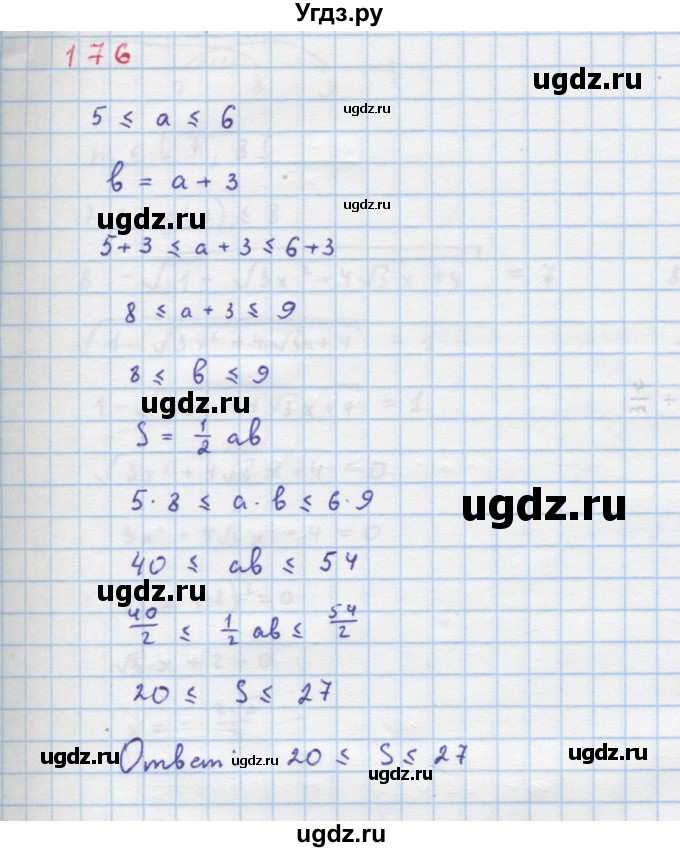 Угдз.ру
176
ugdz.ru
5 ≤ a ≤ 6
ugdz.ru
b = a + 3
ugdz.ru
ugdz.ru
5+3 ≤ a + 3 ≤ 6+3
8 ≤ a + 3 ≤ 9
8 ≤ b ≤ 9
ugdz.ru
S = 1/2 ab
5·8 ≤ a·b ≤ 6·9
ugdz.ru
40 ≤ ab ≤ 54
ugdz.ru
40/2 ≤ 1/2 ab ≤ 54/2
20 ≤ S ≤ 27
Ответ: 20 ≤ S ≤ 27
ugdz.ru ugdz.ru ugdz.ru
ugdz.ru
ugdz.ru